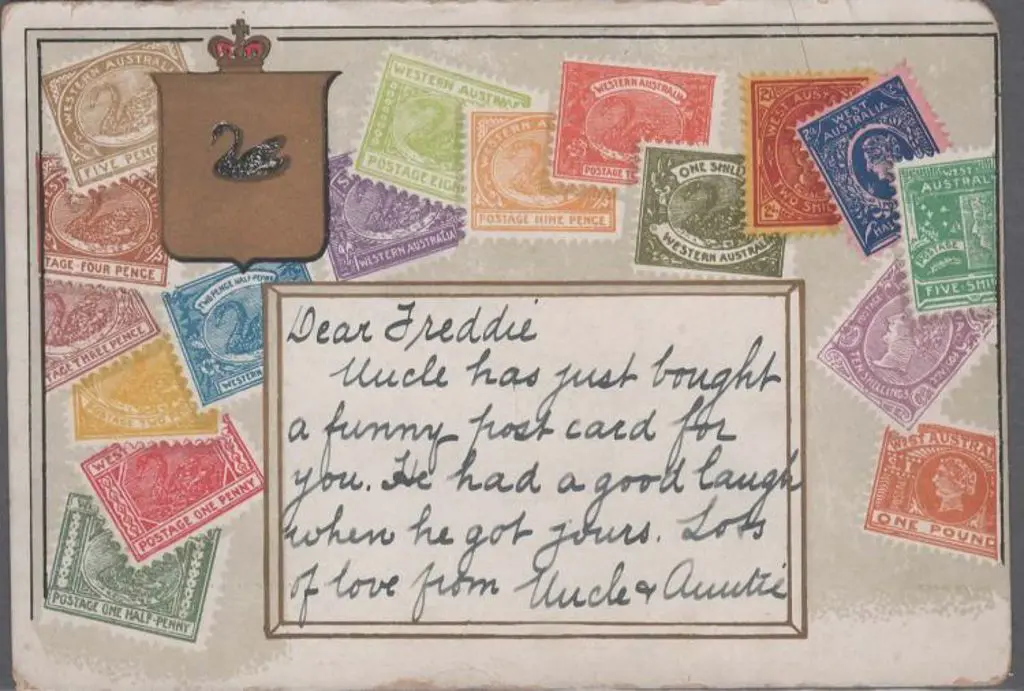 WESTERN AUSTRALIA
FIVE PENCE
TAGE-FOUR PENCE
TAGE THREE PENCE
TWO PENCE HALF-PENNY
WESTERN
POSTAGE TWO
WES
POSTAGE ONE PENNY
POSTAGE ONE HALF-PENNY
WESTERN AUSTRALIA
WESTERN AUSTRAL
POSTAGE EIGH
WESTERN A
POSTAGE NINE PENCE
WESTERN AUSTRALIA
POSTAGE T
ONE SHILL
WESTERN AUSTRALIA
WEST AUST
TWO SHI
WEST
AUSTRALIA
HA
WEST
AUSTRAL
POSTAGE
FIVE-SHI
POSTAGE
TEN SHILLINGS
WEST AUSTRA
ONE POUND
Dear Freddie
Uncle has just bought
a funny post card for
you. He had a good laugh
when he got yours. Lots
of love from Uncle & Auntie